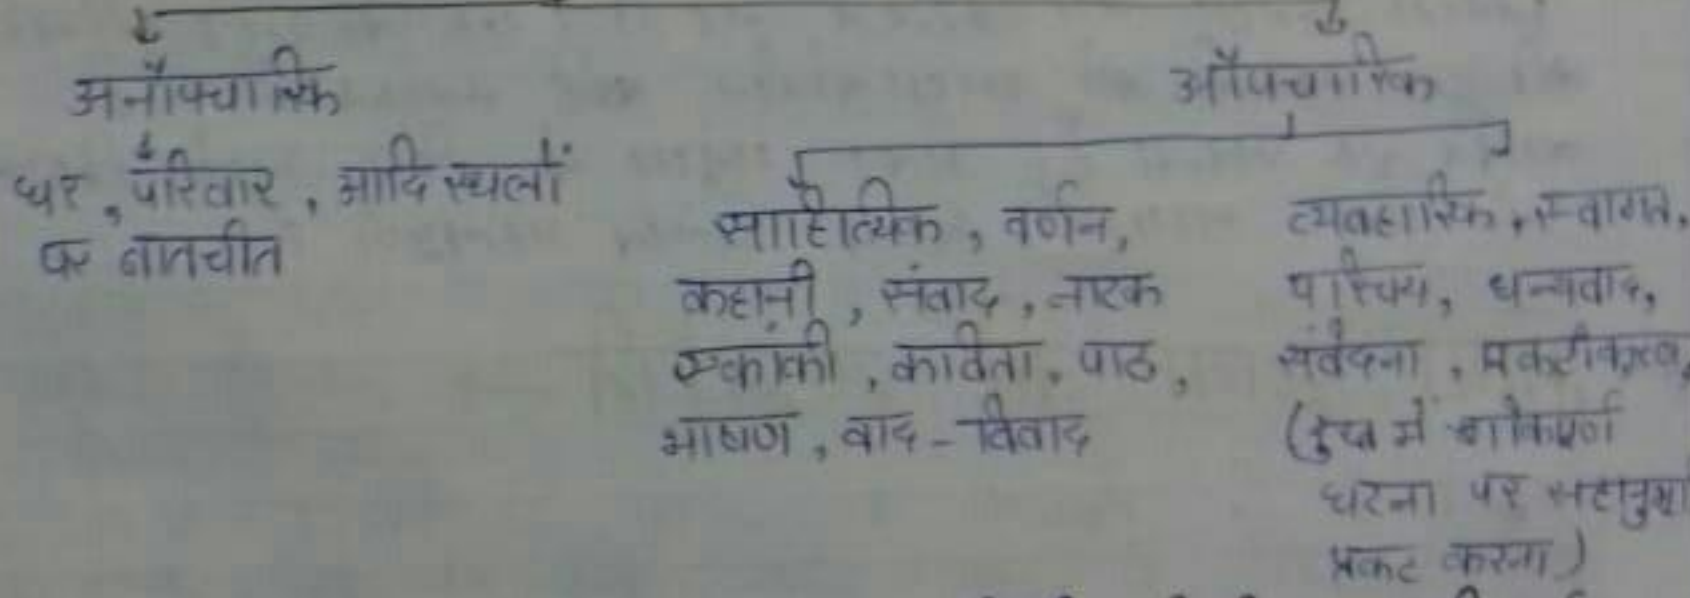 अनौपचारिक
औपचारिक
घर, परिवार, आदि स्थलों
पर बातचीत
साहित्यिक, वर्णन,
कहानी, संवाद, नाटक
एकांकी, कविता, पाठ,
भाषण, वाद-विवाद
व्यवहारिक, स्वागत,
परिचय, धन्यवाद,
संवेदना, प्रकटीकरण,
(दुख में शोकपूर्ण
घटना पर
प्रकट करना)